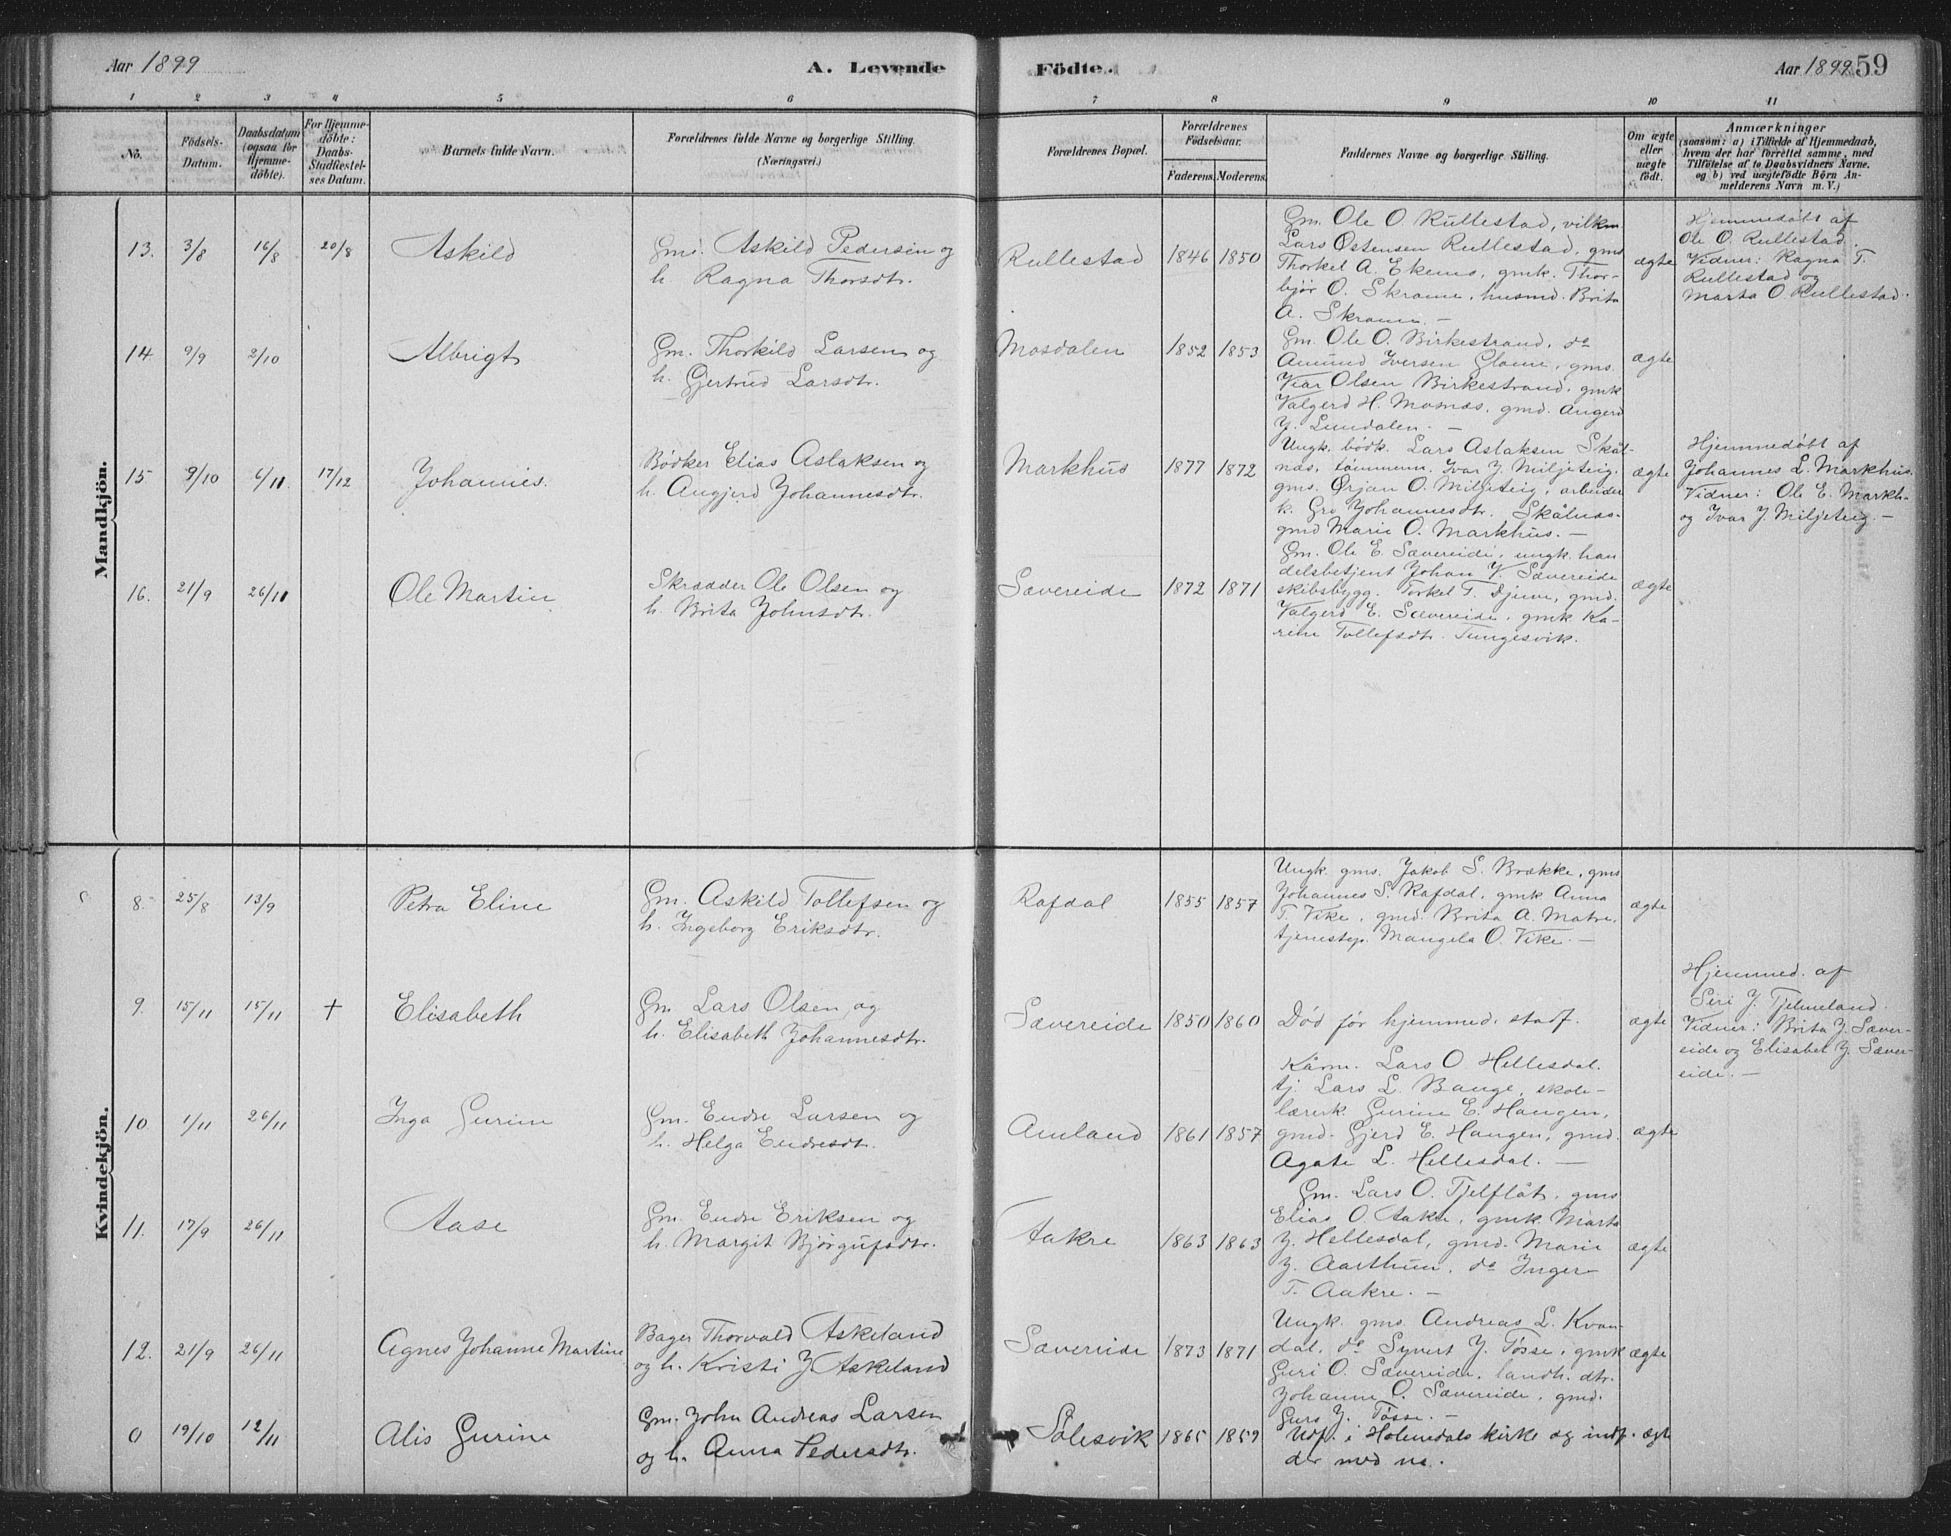 Aar 1899
A. Levende
Födte.
Aar 1899
59
1 2 3 4 5 6 7 8 9 10 11
No.
Födsels-
Datum.
Daabsdatum
(ogsaa for
Hjemme-
döbte).
For Hjemme-
döbte:
Daabs-
Stadfæstel-
ses Datum.
Barnets fulde Navn.
Forældrenes fulde Navne og borgerlige Stilling.
(Næringsvei.)
Forældrenes Bopæl.
Forældrenes
Födselsaar.
Faderens. Moderens.
Faddernes Navne og borgerlige Stilling.
Om ægte
eller
uægte
født.
Anmærkninger
(saasom: a) i Tilfælde af Hjemmedaab,
hvem der har forrettet samme, med
Tilföielse af to Daabsvidners Navne.
og b) ved uægtefödte Börn An-
melderens Navn m. V.)
Mandkjön.
13. 3/8 16/8 20/8 Askild
Gm. Askild Pedersen og
h. Ragna Thorsdtr.
Rullestad 1846 1850
Gm. Ole O. Rullestad,
Lars Østensen Rullestad, gms
Thorkel A. Ekenes, gmk. Thor-
bjør O. Skrame, husmd. Brita
A. Skrame. —
ægte
Hjemmedøbt af
Ole O. Rullestad.
Vidner: Ragna T.
Rullestad og
Marta O. Rullestad.
14. 9/9 2/10 Albrigt
Gm. Thorkild Larsen og
h. Gjertrud Larsdtr.
Mosdalen 1852 1853
Gm. Ole O. Birkestrand, do
Amund Iversen Glame, gms.
Viar Olsen Birkestrand, gmk
Valgerd H. Mosnæs, gmd. Angerd
J. Lundalen. —
ægte
15 9/10 6/11 17/12 Johannes.
Bødker Elias Aslaksen og
h. Angjerd Johannesdtr.
Markhus 1877 1872
Ungk. bødk. Lars Aslaksen Skål-
næs, tømmerm. Ivar J. Miljeteig.
gms. Ørjan O. Miljeteig, arbeider
k. Gro Johannesdtr. Skålnæs.
gmd Marie O. Markhus. —
ægte
Hjemmedøbt af
Johannes L. Markhus.
Vidner: Ole E. Markh.
og Ivar J. Miljeteig. —
16. 21/9 26/11 Ole Martin
Skrædder Ole Olsen og
h. Brita Johnsdtr.
Sævereide 1872 1871
Gm. Ole E. Sævereide, ungk. han
delsbetjent Johan J. Sævereide
skibsbygg. Torkel T. Djuve, gmd.
Valgerd E. Sævereide, gmk Ka-
rine Tollefsdtr. Tungesvik.
ægte
Kvindekjön.
8 25/8 13/9 Petra Eline
Gm. Askild Tollefsen og
h. Ingeborg Eriksdtr.
Rafdal 1855 1857
Ungk. gms. Jakob S. Brække, gms
Johannes S. Rafdal, gmk Anna
T. Vike, gmd. Brita A. Matre,
tjenestep. Mangela O. Vike. —
ægte
9. 15/11 15/11 + Elisabeth
Gm Lars Olsen og
h. Elisabeth Johannesdtr.
Sævereide 1850 1860
Død før hjemmed. stadf.
ægte
Hjemmed. af
Siri J. Tjelmeland.
Vidner: Brita J. Sæver-
eide og Elisabet J. Sæver-
eide. —
10 1/11 26/11 Inga Gurine
Gm. Endre Larsen og
h. Helga Endresdtr.
Amland 1861 1857
Kårm. Lars O. Hellesdal.
tj. Lars L. Bauge, skole-
lærerk Gurine E. Haugen,
gmd. Gjerd E. Haugen, gmd.
Agate L. Hellesdal. —
ægte
11. 17/9 26/11 Aase
Gm. Endre Eriksen og
h. Margit Bjørgufsdtr.
Aakre 1863 1863
Gm. Lars O. Tjelflåt, gms
Elias O. Aakre, gmk. Marta
J. Hellesdal, gmd. Marie
J. Aarthun, do Inger
T. Aakre. —
ægte
12. 21/9 26/11 Agnes Johanne Martine
Bager Thorvald Askeland
og h. Kristi J Askeland
Sævereide 1873 1871
Ungk. gms. Andreas L. Kvan-
dal, do Syvert J. Tøsse, gmk
Guri O. Sævereide, landh. dtr.
Johanne O. Sævereide, gmd.
Guro J. Tøsse. —
ægte
0 19/10 12/11 Alis Gurine
Gm. John Andreas Larsen
og h. Anna Pedersdtr.
Sølesvik 1865 1859
Udf. i Holmedals kirke og indf.
der med no.
ægte